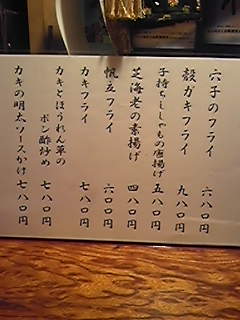 穴子のフライ 六八〇円
殻ガキフライ 九八〇円
子持ちししゃもの唐揚げ 五八〇円
芝海老の素揚げ 四八〇円
帆立フライ 六〇〇円
カキフライ 七八〇円
カキとほうれん草の
ポン酢炒め 七八〇円
カキの明太ソースかけ 七八〇円